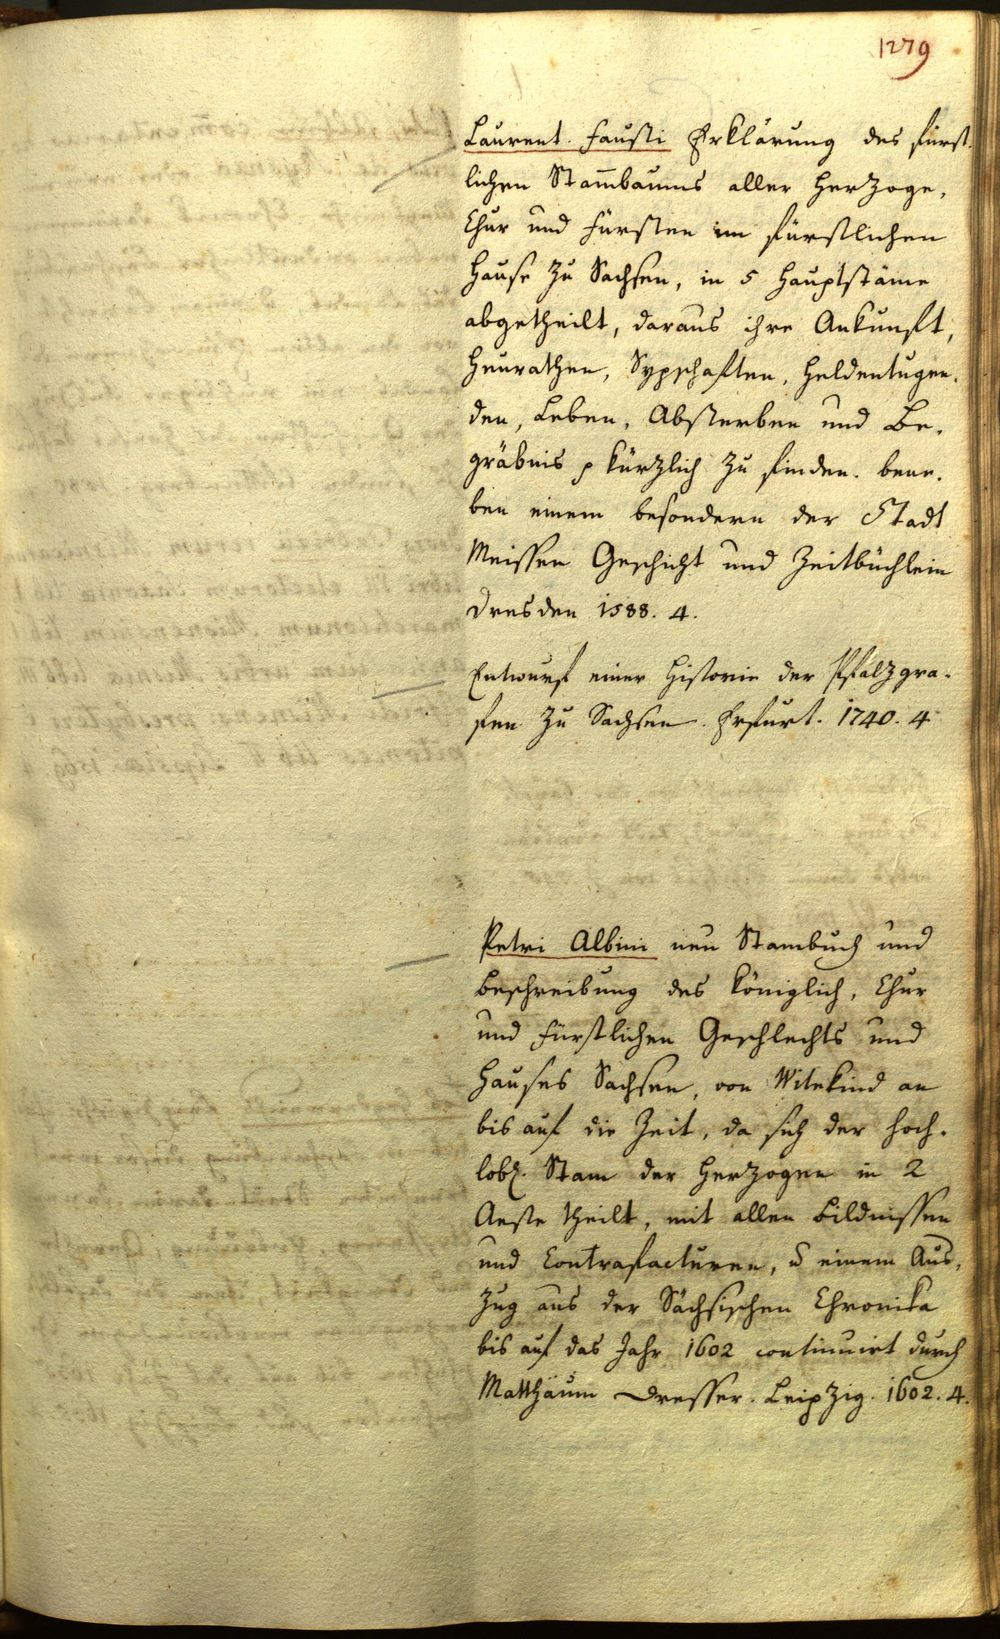 1279
Laurent. Fausti Erklärung des fürst.
lichen Stam̅baums aller Herzoge,
Chur und Fürsten im fürstlichen
Hause zu Sachsen, in 5 Hauptstäme
abgetheilt, daraus ihre Ankunft,
Heurathen, Sypschaften, Heldentugen.
den, Leben, Absterben und Be.
gräbnis p kürzlich zu finden. bene.
ben einem besondern der Stadt
Meissen Geschicht und Zeitbüchlein
Dresden 1588. 4.
Entwurf einer Historie der Pfalzgra.
fen zu Sachsen. Erfurt. 1740. 4
Petri Albini neu Stambuch und
Beschreibung des Königlich, Chur
und Fürstlichen Geschlechts und
Hauses Sachsen, von Witekind an
bis auf die Zeit, da sich der hoch.
lobl. Stam der Herzogen in 2
Aeste theilt, mit allen Bildnissen
und Contrafacturen, u einem Aus.
zug aus der Sächsischen Chronika
bis auf das Jahr 1602 continuirt durch
Matthäum Dresser. Leipzig. 1602. 4.